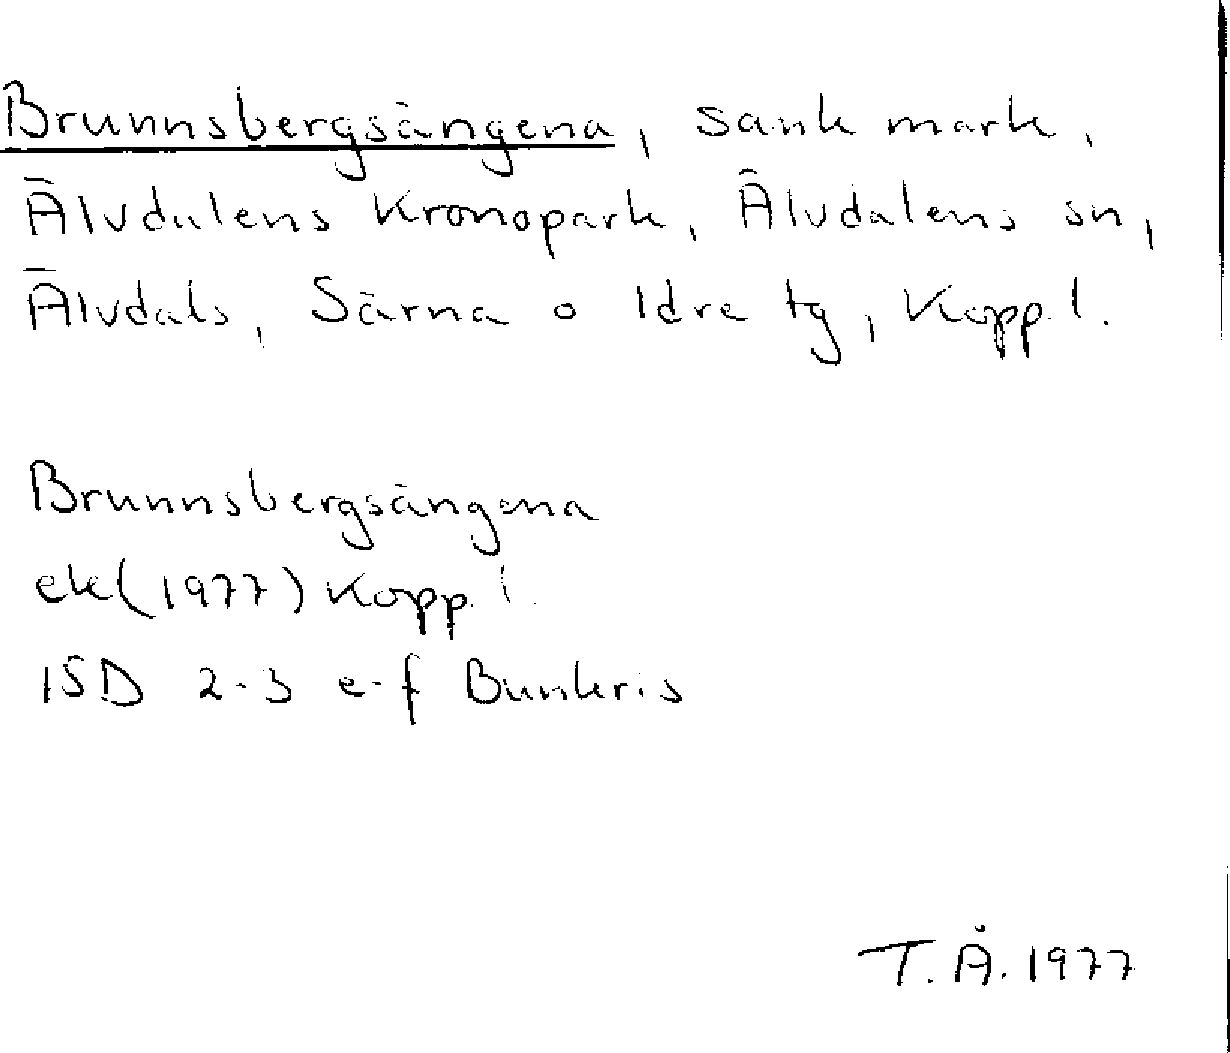 Brunnsbergsängena, sank mark,
Älvdalens Kronopark, Älvdalens sn,
Älvdals, Särna o Idre tg, Kopp.l.
Brunnsbergsängena
ek (1977) Kopp.l.
15D 2-3 e-f Bunkris
T.Å. 1977